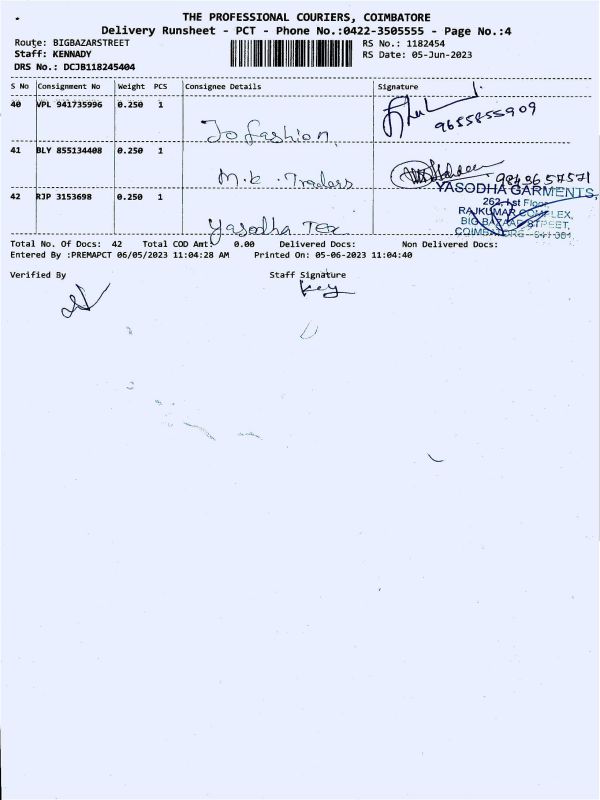 THE PROFESSIONAL COURIERS, COIMBATORE
Delivery Runsheet - PCT - Phone No.:0422-3505555 - Page No.:4
Route: BIGBAZARSTREET RS No.: 1182454
Staff: KENNADY RS Date: 05-Jun-2023
DRS No.: DCJB118245404
S No Consignment No Weight PCS Consignee Details Signature
40 VPL 941735996 0.250 1
Jo fashion, 9655855909
41 BLY 855134408 0.250 1
M.K. Traders 9843657571
42 RJP 3153698 0.250 1 YASODHA GARMENTS,
262, 1st Floor,
RAJKUMAR COMPLEX,
BIG BAZAAR STREET,
Yasodha Tex COIMBATORE - 641 001.
Total No. Of Docs: 42 Total COD Amt: 0.00 Delivered Docs: Non Delivered Docs:
Entered By :PREMAPCT 06/05/2023 11:04:28 AM Printed On: 05-06-2023 11:04:40
Verified By Staff Signature